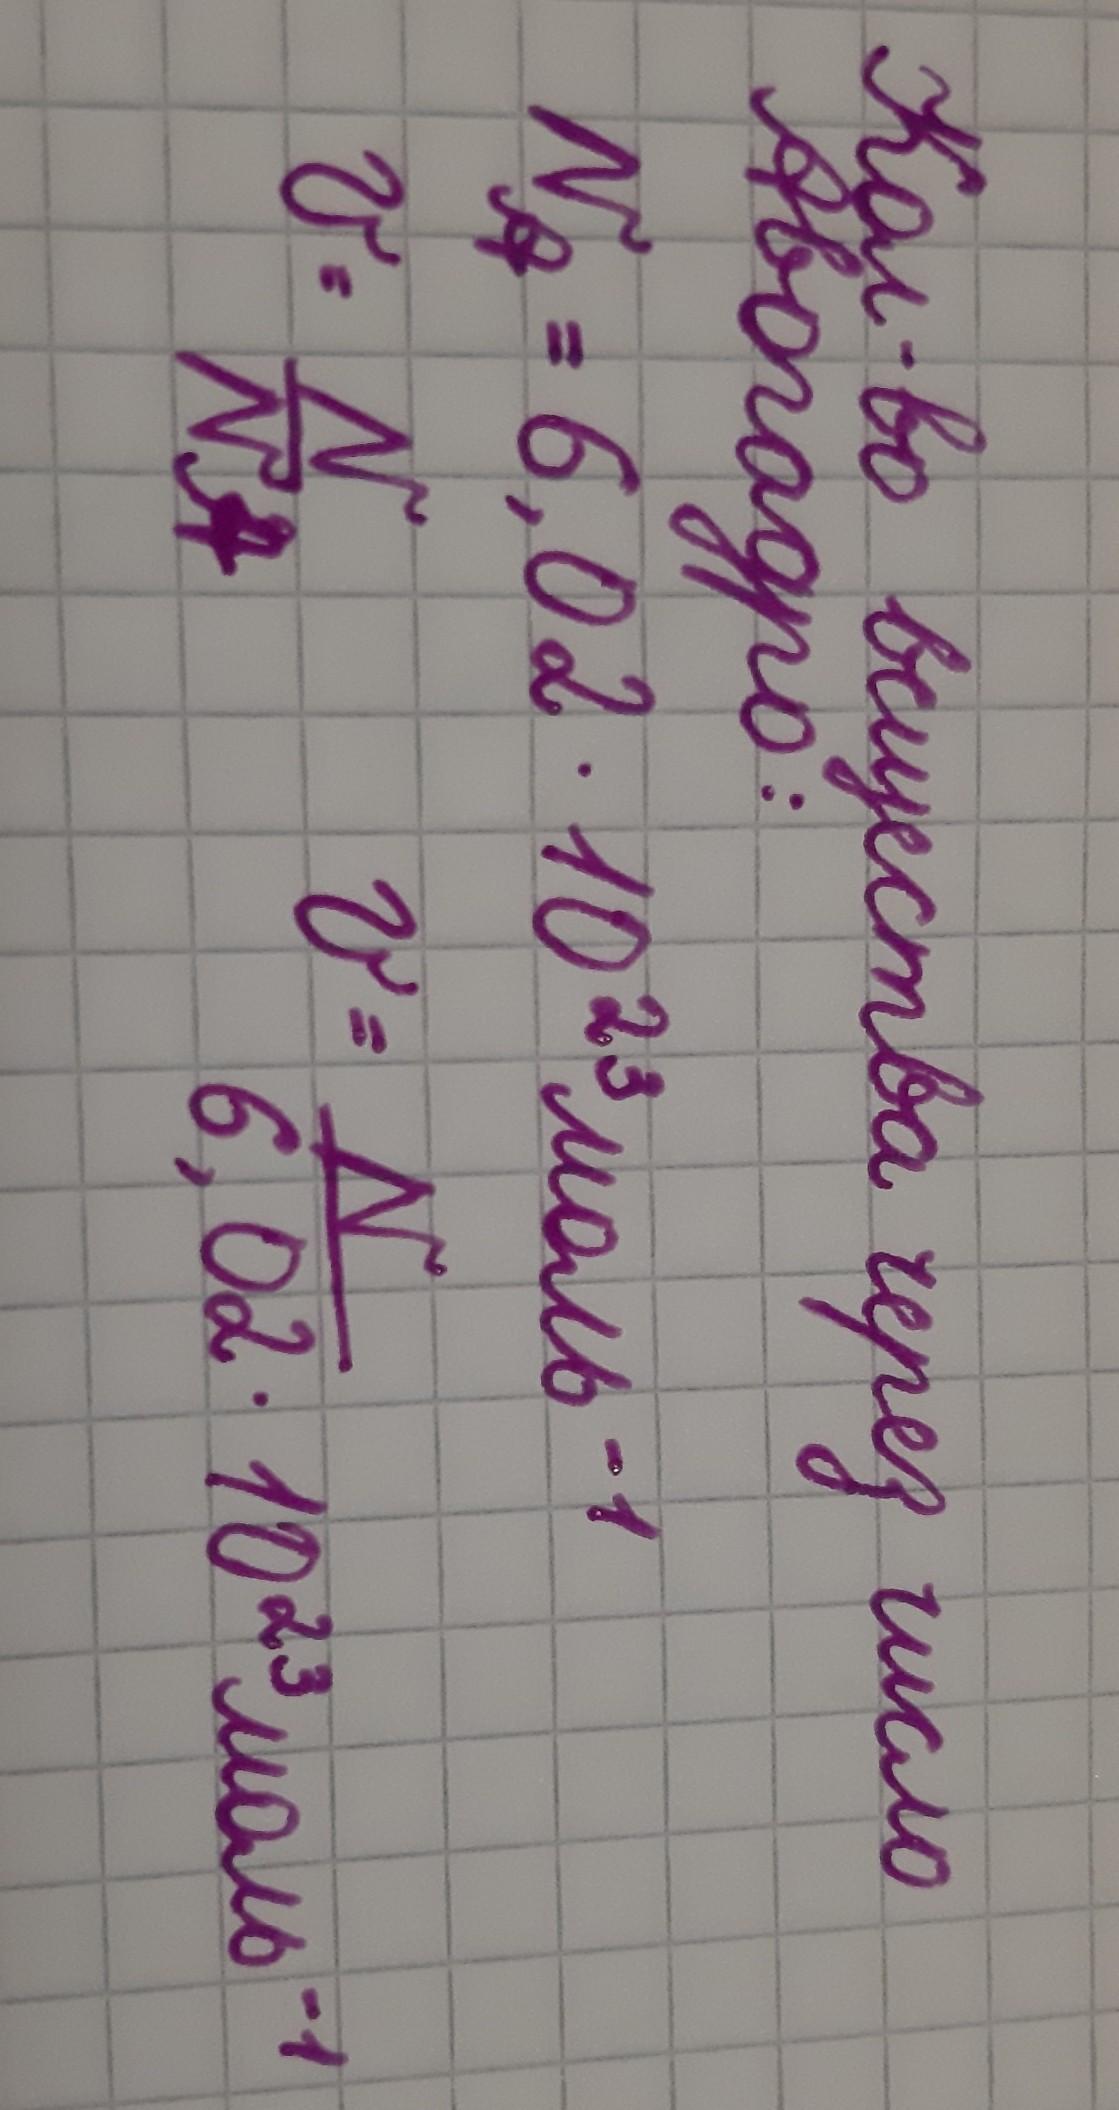 Кол-во вещества через число
Авогадро:
N_A = 6,02 · 10²³ моль⁻¹
ν = N/N_A ν = N/6,02 · 10²³ моль⁻¹